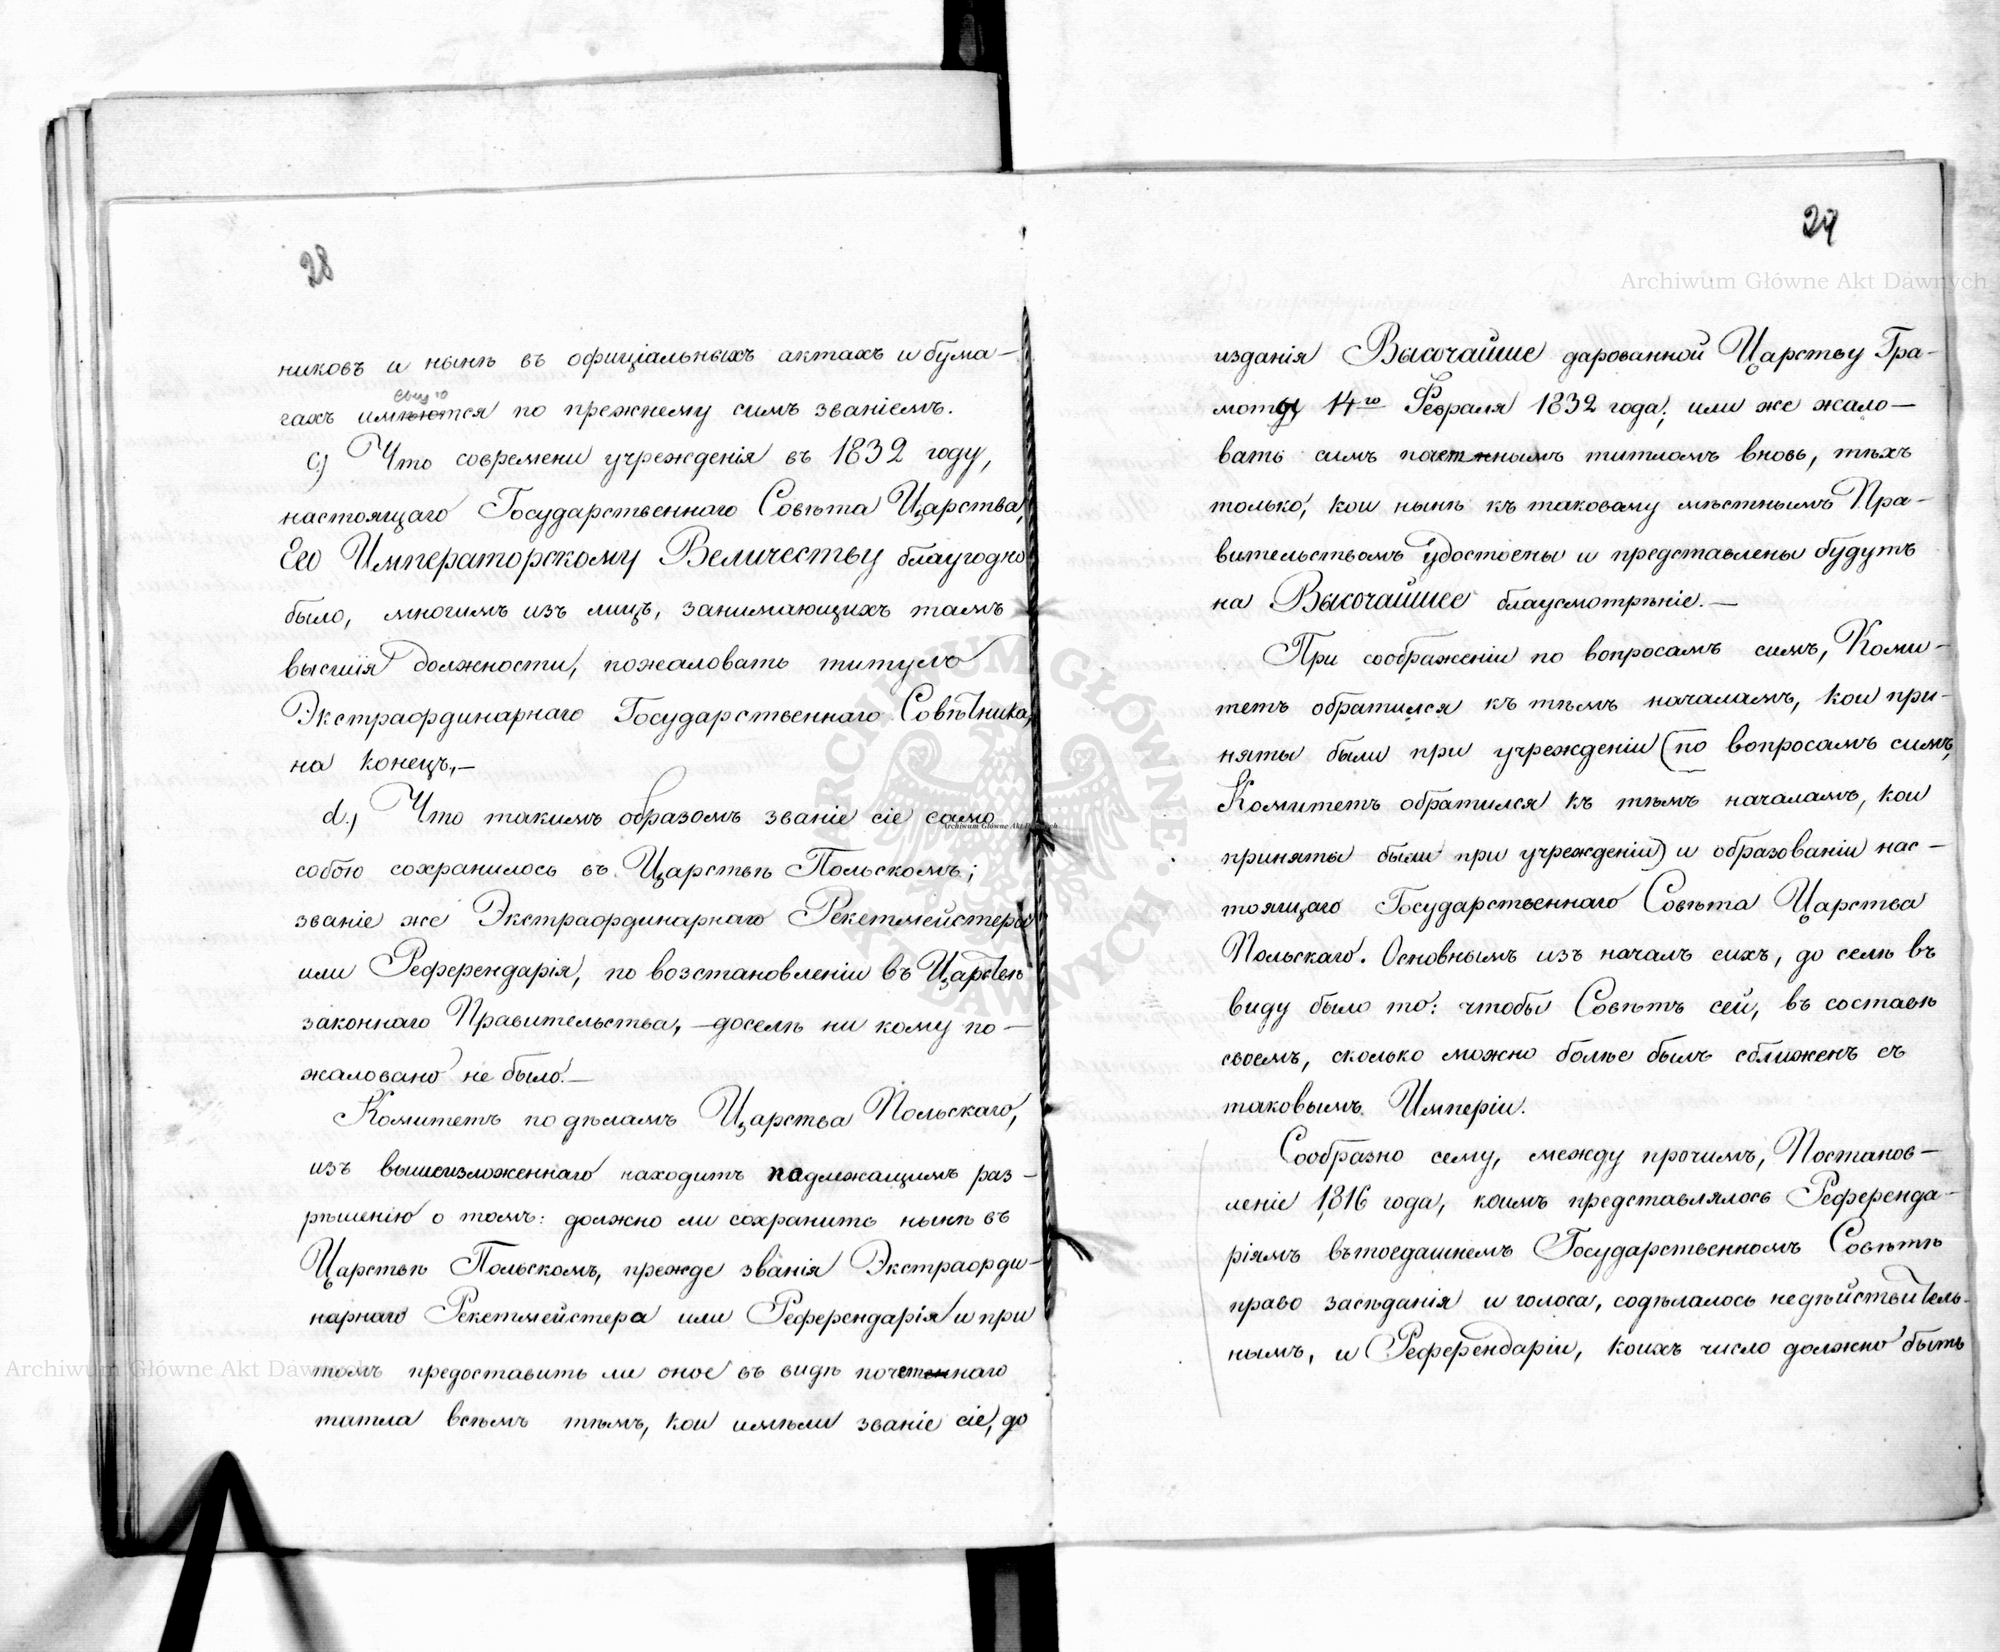 28
никовъ и нынѣ въ офиціальныхъ актахъ и бума-
гахъ имѣются по прежнему симъ званіемъ.
c) Что современи учрежденія въ 1832 году,
настоящаго Государственнаго Совѣта Царства,
Его Императорскому Величеству благоугодно
было, многимъ изъ лицъ, занимающихъ тамъ
высшія должности, пожаловать титулъ
Экстраординарнаго Государственнаго Совѣтника,
на конецъ,—
d.) Что такимъ образомъ званіе сіе само
собою сохранилось въ Царствѣ Польскомъ;
званіе же Экстраординарнаго Рекетмейстера
или Референдарія, по возстановленіи въ Царствѣ
законнаго Правительства, — доселѣ ни кому по-
жаловано не было.—
Комитетъ по дѣламъ Царства Польскаго,
изъ вышеизложеннаго находитъ подлежащимъ раз-
рѣшенію о томъ: должно ли сохранить нынѣ въ
Царствѣ Польскомъ, прежде званія Экстраорди-
нарнаго Рекетмейстера или Референдарія и при
томъ предоставить ли оное въ видѣ почетнаго
титла всѣмъ тѣмъ, кои имѣли званіе сіе, до
29
изданія Высочайше дарованной Царству Гра-
моты 14го Февраля 1832 года; или же жало-
вать симъ почетнымъ титломъ вновь, тѣхъ
только, кои нынѣ къ таковому мѣстнымъ Пра-
вительствомъ удостоены и представлены будутъ
на Высочайшее благоусмотрѣніе.—
При соображеніи по вопросамъ симъ, Коми-
тетъ обратился къ тѣмъ началамъ, кои при-
няты были при учрежденіи (по вопросамъ симъ,
Комитетъ обратился къ тѣмъ началамъ, кои
приняты были при учрежденіи) и образованіи нас-
тоящаго Государственнаго Совѣта Царства
Польскаго. Основнымъ изъ началъ сихъ, до селѣ въ
виду было то: чтобы Совѣтъ сей, въ составѣ
своемъ, сколько можно болѣе былъ сближенъ съ
таковымъ Имперіи.
Сообразно сему, между прочимъ, Постанов-
леніе 1816 года, коимъ представлялось Референда-
ріямъ вътогдашнемъ Государственномъ Совѣтѣ
право засѣданія и голоса, содѣлалось недѣйствитель-
нымъ, и Референдаріи, коихъ число должно быть
Archiwum Główne Akt Dawnych
Archiwum Główne Akt Dawnych
Archiwum Główne Akt Dawnych
ARCHIWUM GŁÓWNE AKT DAWNYCH